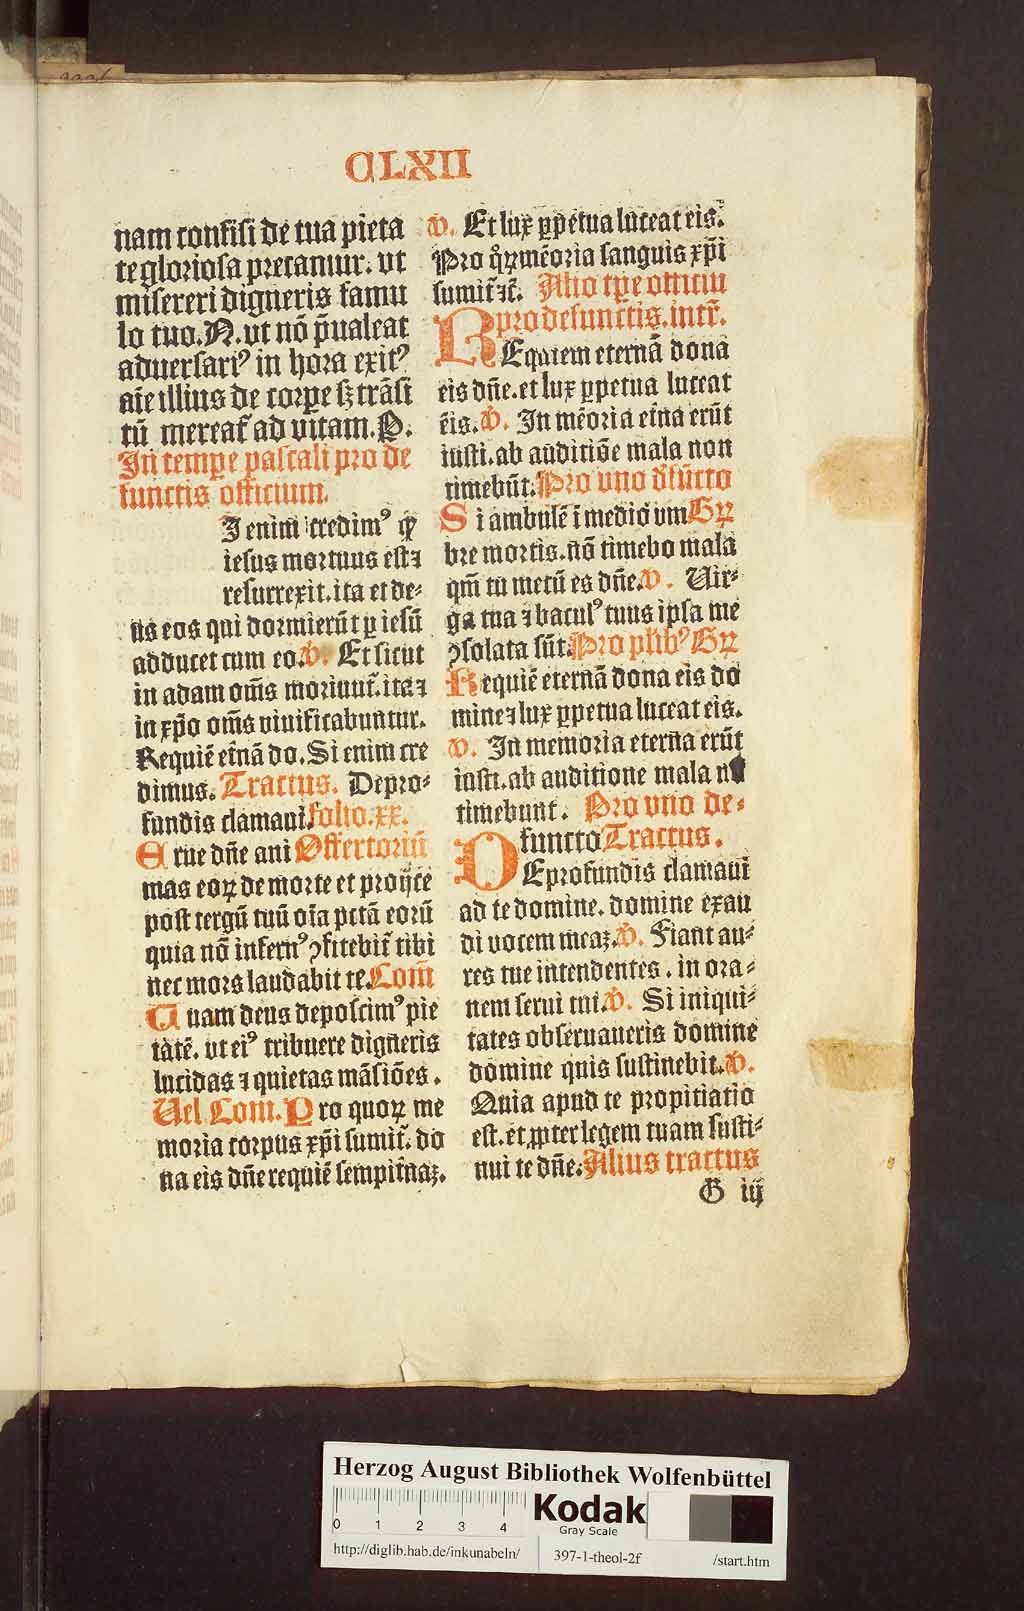 CLXII
nam confisi de tua pieta
te gloriosa precamur. vt
misereri digneris famu
lo tuo. N. vt nō p̄ualeat
aduersariꝰ in hora exitꝰ
aīe illius de corpe sꝫ trāsi
tū mereat̄ ad vitam. P.
In tempe pascali pro de
functis officium.
I enim credimꝰ qꝛ
iesus mortuus est ⁊
resurrexit. ita et de-
us eos qui dormierūt ꝑ iesū
adducet cum eo. V. Et sicut
in adam om̄s moriunt̄. ita ⁊
in xp̄o om̄s viuificabuntur.
Requiē et̄nā do. Si enim cre
dimus. Tractus. De pro-
fundis clamaui. folio. xx.
E rue dn̄e ani Offertoriū
mas eoꝝ de morte et proijce
post tergū tuū oīa pctā eorū
quia nō infernꝰ ꝯfitebit̄ tibi
nec mors laudabit te. Com̄
T uam deus deposcimꝰ pie
tatē. vt eiꝰ tribuere digneris
lucidas ⁊ quietas māsiōes.
Uel Com. P ro quoꝝ me
moria corpus xp̄i sumit̄. do
na eis dn̄e requiē sempit̄naꝫ.
V. Et lux ꝑpetua luceat eis.
Pro qͦꝝ mēoria sanguis xp̄i
sumit̄ ⁊c̄. Alio tꝑe officiū
pro defunctis. intr̄.
REquiem eternā dona
eis dn̄e. et lux ꝑpetua luceat
eis. V. In mēoria et̄na erūt
iusti. ab auditiōe mala non
timebūt. Pro vno dēfūcto
S i ambulē ī medio vm Gꝝ
bre mortis. nō timebo mala
qm̄ tu mecū es dn̄e. V. Uir-
ga tua ⁊ baculꝰ tuus ipsa me
ꝯsolata sūt. Pro plibꝰ Gꝝ
Requiē eternā dona eis do
mine ⁊ lux ꝑpetua luceat eis.
V. In memoria eterna erūt
iusti. ab auditione mala nō
timebunt. Pro vno de-
functo Tractus.
DEprofundis clamaui
ad te domine. domine exau
di vocem meaꝫ. V. Fiant au-
res tue intendentes. in ora-
nem serui tui. V. Si iniqui-
tates obseruaueris domine
domine quis sustinebit. V.
Quia apud te propitiatio
est. et ꝓpter legem tuam susti-
nui te dn̄e. Alius tractus
G iij
Herzog August Bibliothek Wolfenbüttel
0 1 2 3 4
Kodak
Gray Scale
http://diglib.hab.de/inkunabeln/
397-1-theol-2f
/start.htm